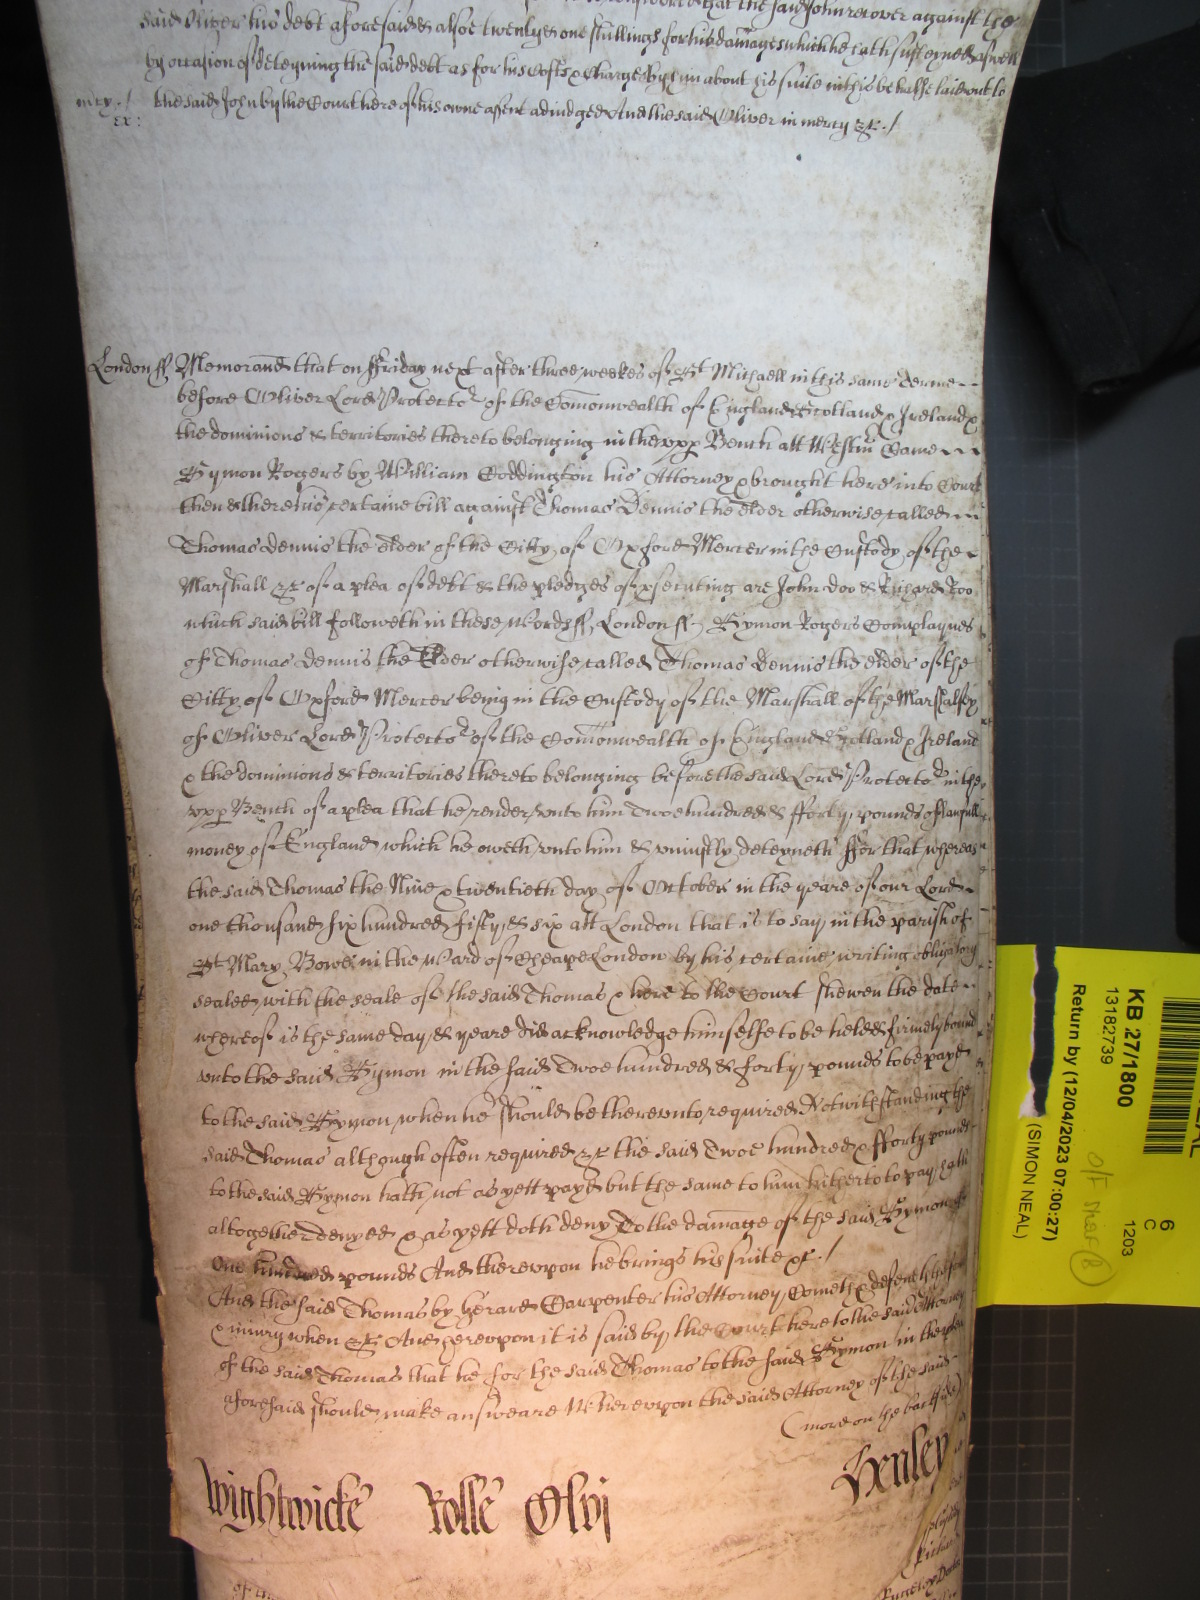 that the said John recover against the
said Oliver his debt aforesaid & alsoe twenty & one shillings for his damages which he hath susteyned aswell
by occasion of deteyning the said debt as for his Costs & Charges by him about his suite in this behalfe laid out to
mcy ./ the said John by the Court here of his owne assent adiudged And the said Oliver in mercy &c ./
ex:
London ss Memorand that on ffriday next after three weekes of St Michaell in this same Terme
before Oliver Lord Protector of the Comonwealth of England Scotland & Ireland &
the dominions & territories thereto belonging in the upp Bench att Westm Came
Symon Rogers by William Coddington his Attorney & brought here into Court
then & there his certaine bill against Thomas Dennis the elder otherwise called
Thomas Dennis the elder of the Citty of Oxford Mercer in the Custody of the
Marshall &c of a plea of debt & the pledges of psecuting are John Doo & Richard Roo
which said bill followeth in these words ss London ss Symon Rogers Complaynes
of Thomas Dennis the Elder otherwise called Thomas Dennis the elder of the
Citty of Oxford Mercer being in the Custody of the Marshall of the Marshalsey
of Oliver Lord Protector of the Comonwealth of England Scotland & Ireland
& the dominions & territories thereto belonging before the said Lord Protector in the
upp Bench of a plea that he render unto him Twoe hundred & fforty pounds of lawfull
money of England which he oweth unto him & uniustly deteyneth ffor that whereas
the said Thomas the Nine & twentieth day of October in the yeare of our Lord
one thousand six hundred fifty & six att London that is to say in the parish of
St Mary Bowe in the Ward of Cheape London by his certaine writing obligatory
sealed with the seale of the said Thomas & here to the Court shewen the date
whereof is the same day & yeare did acknowledge himselfe to be held & firmely bound
unto the said Symon in the said Twoe hundred & forty pounds to be payd
to the said Symon when he should be thereunto required Notwithstanding the
said Thomas although often required &c the said Twoe hundred & fforty pounds
to the said Symon hath not as yett payd but the same to him hitherto to pay hath
altogether denyed & as yett doth deny To the damage of the said Symon of
One hundred pounds And thereupon he brings his suite &c ./
And the said Thomas by Gerard Carpenter his Attorney Cometh & defendeth the force
& iniury when &c And hereupon it is said by the Court here to the said Attorney
of the said Thomas that he for the said Thomas to the said Symon in the plea
aforesaid should make answeare Whereupon the said Attorney of the said
(more on the backside)
Wightwicke Rolle Olvj Henley
KB 27/1800
13182739
Return by (12/04/2023 07:00:27)
(SIMON NEAL)
6
C
1203